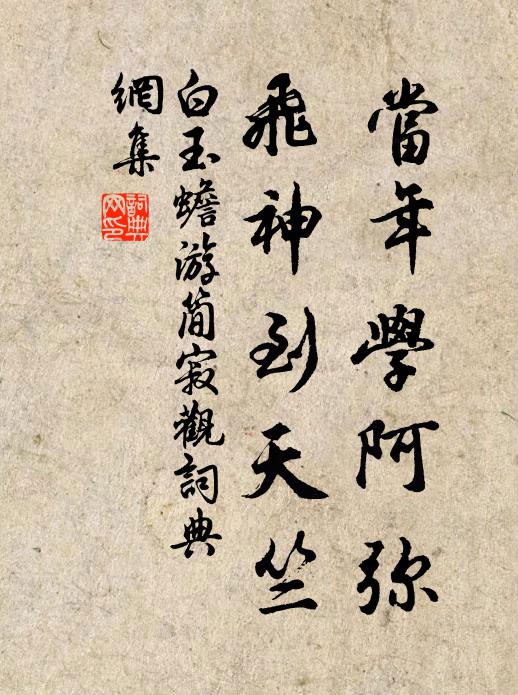 當年學阿弥
飛神到天竺
白玉蟾游簡寂觀詞典
網集
詞典
网印